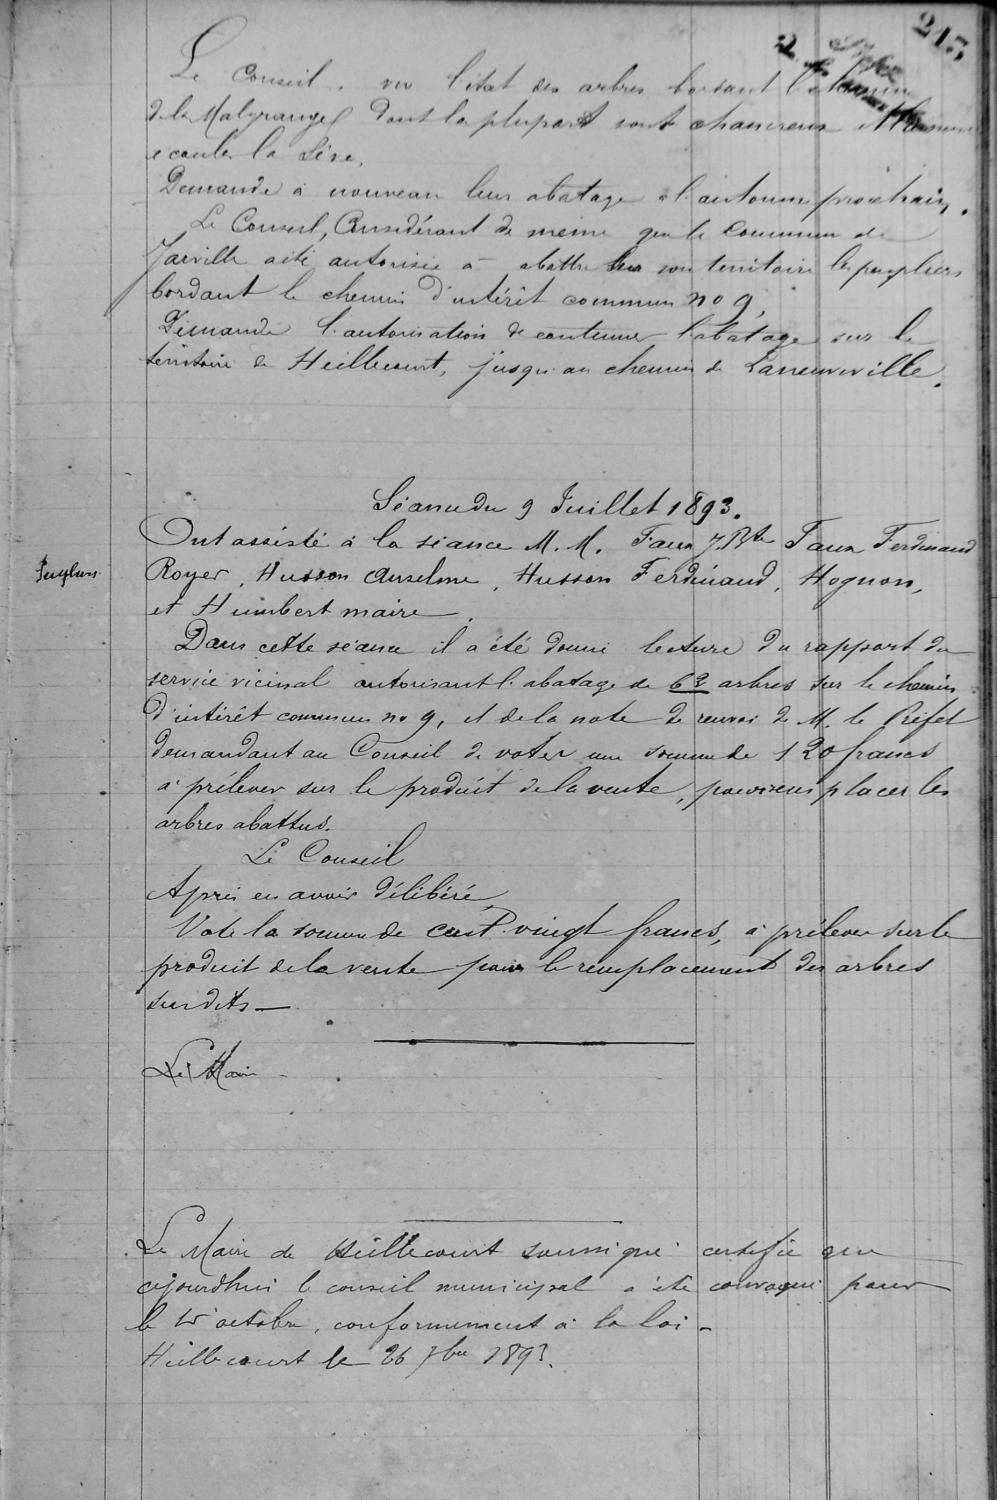 213
2
Le Conseil, vu l'état des arbres bordant le chemin
de la Malgrange dont la plupart sont chancreux et laissent
écouler la sève,
Demande à nouveau leur abatage à l'automne prochain.
Le Conseil, Considérant de même que la commune de
Jarville a été autorisée à abattre sur son territoire les peupliers
bordant le chemin d'intérêt commun no 9,
Demande l'autorisation de continuer l'abatage sur le
territoire de Heillecourt, jusqu'au chemin de Laneuveville.
Séance du 9 Juillet 1893.
Ont assisté à la séance M. M. Faux J. Bte Faux Ferdinand
Peupliers
Royer, Husson Anselme, Husson Ferdinand, Hognon,
et Humbert maire.
Dans cette séance il a été donné lecture du rapport du
service vicinal autorisant l'abatage de arbres sur le chemin
d'intérêt commun no 9, et de la note de renvoi de M. le Préfet
demandant au Conseil de voter une somme de 120 francs
à prélever sur le produit de la vente, pour remplacer les
arbres abattus.
Le Conseil
Après en avoir délibéré,
Vote la somme de cent vingt francs, à prélever sur le
produit de la vente pour le remplacement des arbres
susdits —
Le Maire
Le Maire de Heillecourt soussigné certifie que
cejourdhui le conseil municipal a été convoqué pour
le octobre, conformément à la loi -
Heillecourt le 26 7bre 1893.